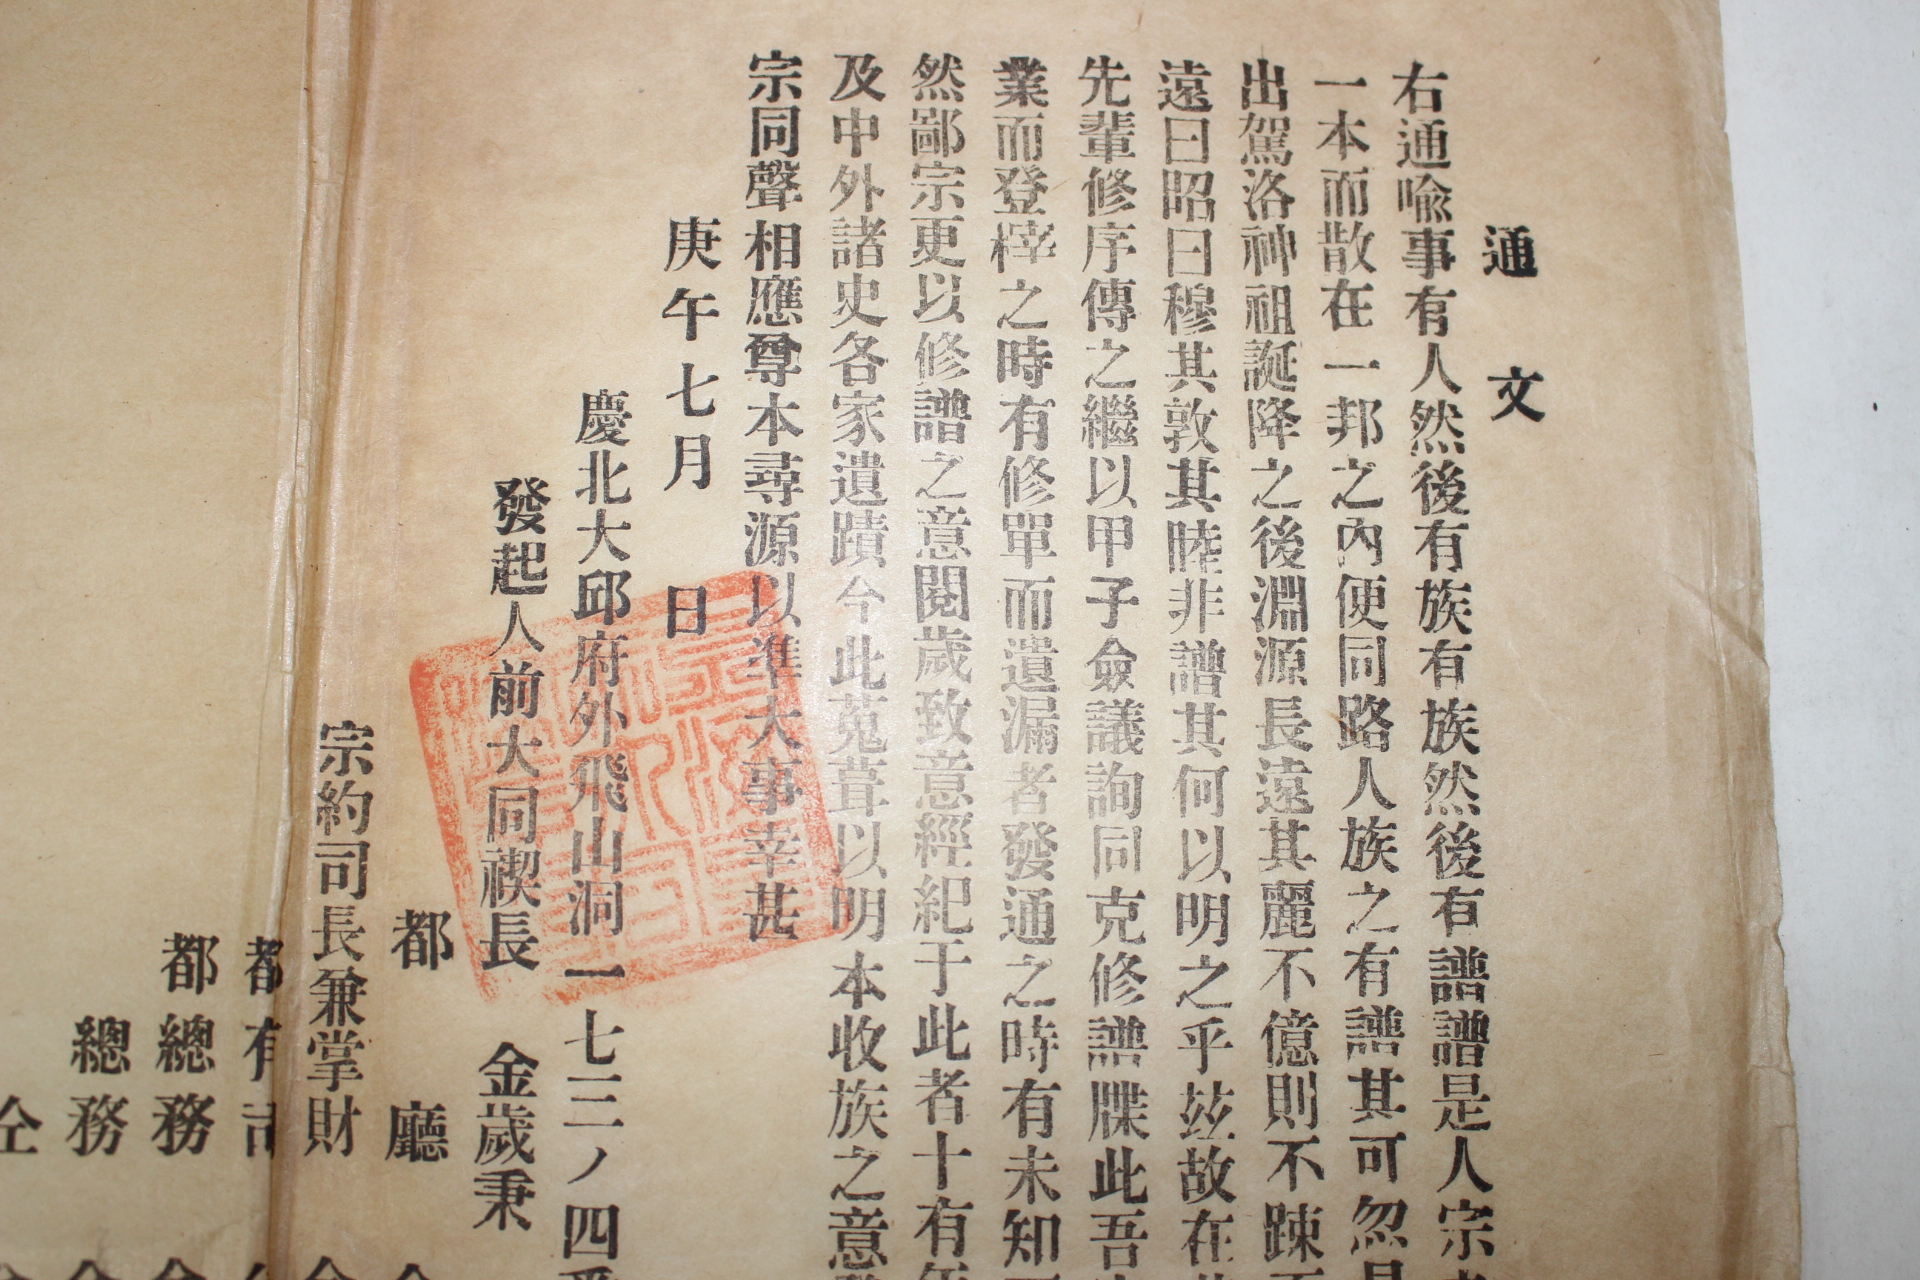 通文
右通喩事有人然後有族有族然後有譜譜是人宗
一本而散在一邦之內便同路人族之有譜其可忽
出駕洛神祖誕降之後淵源長遠其麗不億則不踈
遠曰昭曰穆其敦其睦非譜其何以明之乎玆故在
先輩修序傳之繼以甲子僉議詢同克修譜牒此吾
業而登梓之時有修單而遺漏者發通之時有未知
然鄙宗更以修譜之意閱歲致意經紀于此者十有年
及中外諸史各家遺蹟今此蒐葺以明本收族之意
宗同聲相應尊本尋源以準大事幸甚
庚午七月 日
慶北大邱府外飛山洞一七三ノ四
發起人前大同禊長 金歲秉
都 廳
宗約司長兼掌財
都有司
都總務
總務
仝